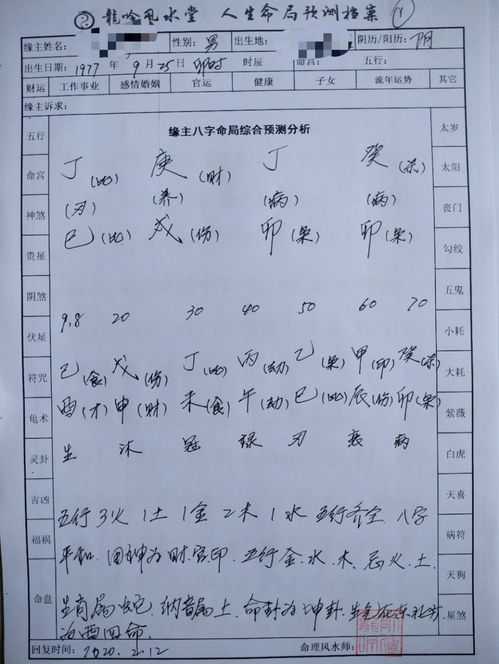 ② 龍吟風水堂 人生命局预测档案 ①
缘主姓名: 性别: 男 出生地: 阴历/阳历: 阴
出生日期: 1977 年 9 月 25日 卯时 时辰: 命宫: 五行:
财运 工作事业 感情婚姻 官运 健康 子女 流年运势 其它
缘主诉求:
缘主八字命局综合预测分析
五行
命宫
神煞
贵诞
阴煞
伏址
符咒
龟术
灵卦
吉凶
福祸
命盘
丁(比) 庚(财) 丁 癸(杀)
(刃) (养) (病) (病)
巳(比) 戌(伤) 卯(枭) 卯(枭)
9.8 20 30 40 50 60 70
己(食) 戊(伤) 丁(比) 丙(劫) 乙(枭) 甲(印) 癸(杀)
酉(才) 申(财) 未(食) 午(劫) 巳(比) 辰(伤) 卯(枭)
生 沐 冠 禄 刃 衰 病
五行 3火 1土 1金 2木 1水 五行齐全 八字
平和. 用神为财官印. 五行金.水.木. 忌火.土.
生肖属蛇. 纳音属土. 命卦为坤卦.
西四命.
太岁
太阳
丧门
勾绞
五鬼
小耗
大耗
紫薇
白虎
天喜
病符
天狗
星煞
回复时间: 2020.2.12 命理风水师: